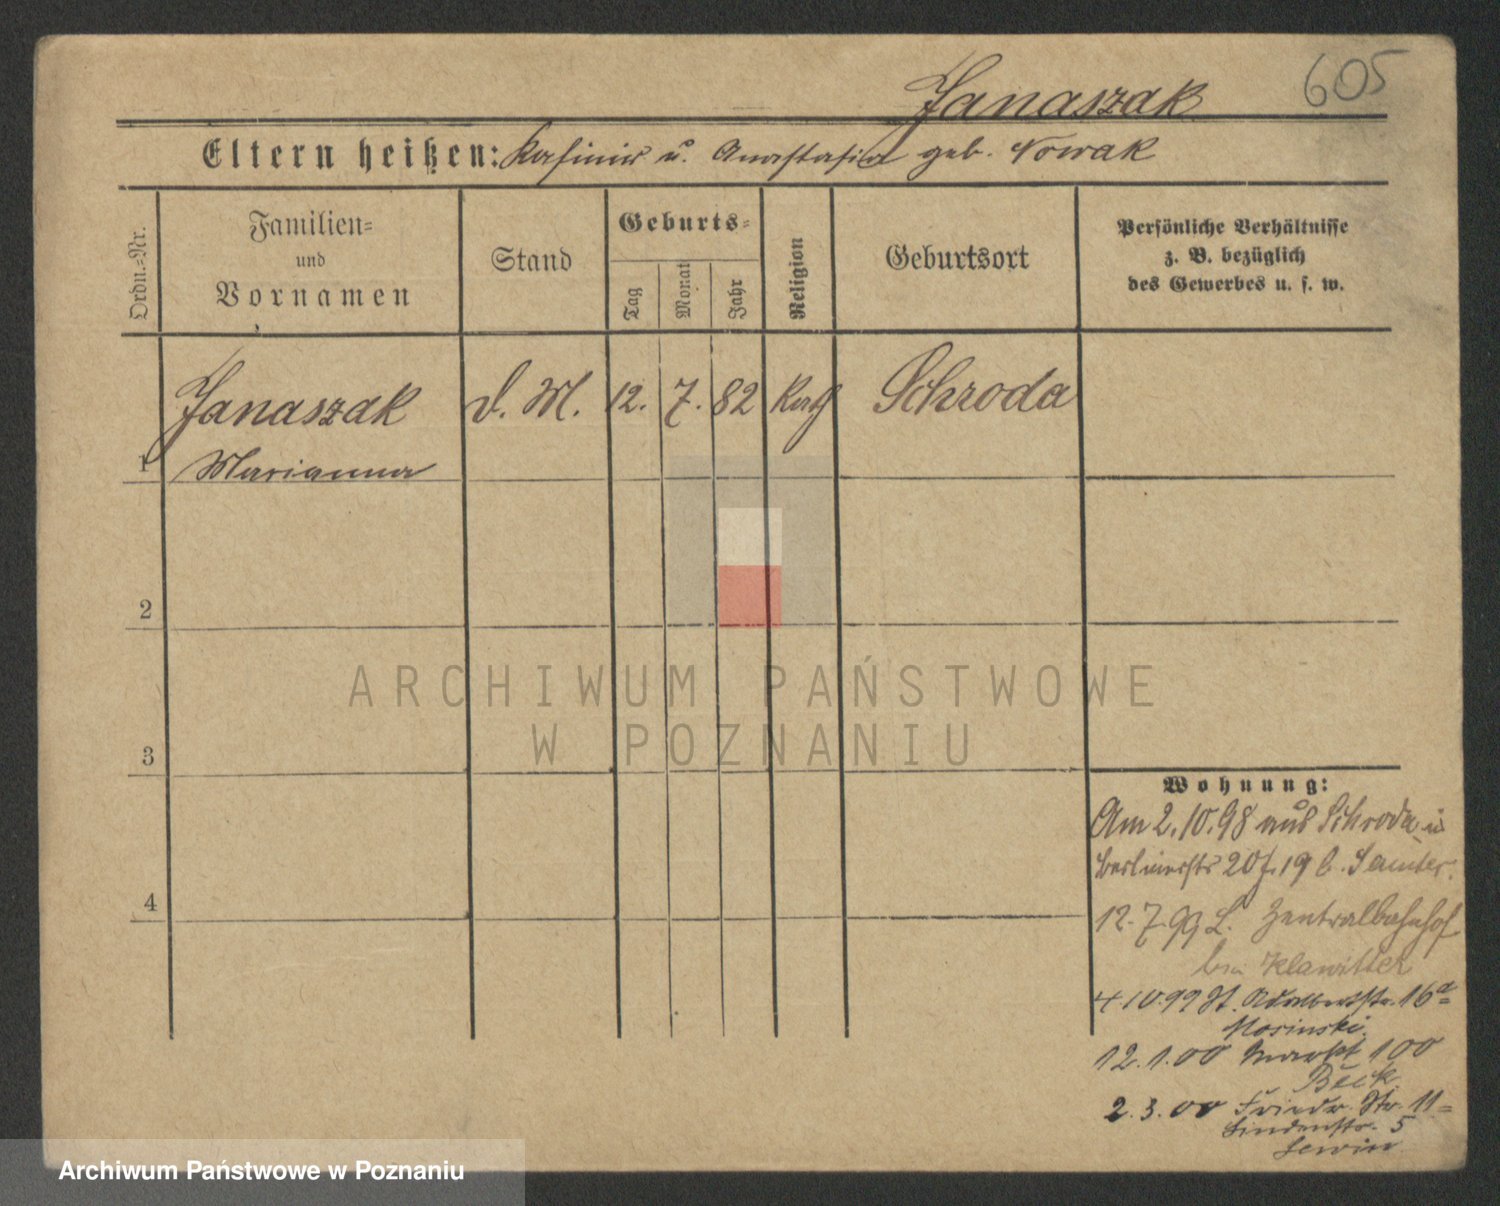 605
Janaszak
Eltern heißen: Kasimir u. Anastasia geb. Nowak
Ordn.-Nr.
Familien-
und
Vornamen
Stand
Geburts-
Tag
Monat
Jahr
Religion
Geburtsort
Persönliche Verhältnisse
z. B. bezüglich
des Gewerbes u. s. w.
Janaszak d. M. 12. 7. 82 Kath Schroda
1 Marianna
2
3
4
Wohnung:
Am 2.10.98 aus Schroda in
Berlinerstr 20 b. Samter.
12.7.99 L. Zentralbahnhof
bei Klawitter
4.10.99 St. Adalbertstr. 16a
Mosinski.
12.1.00 Markt 100
Beck.
2.3.00 Friedr. Str. 11
Lindenstr. 5
Lewin
ARCHIWUM PAŃSTWOWE
W POZNANIU
Archiwum Państwowe w Poznaniu